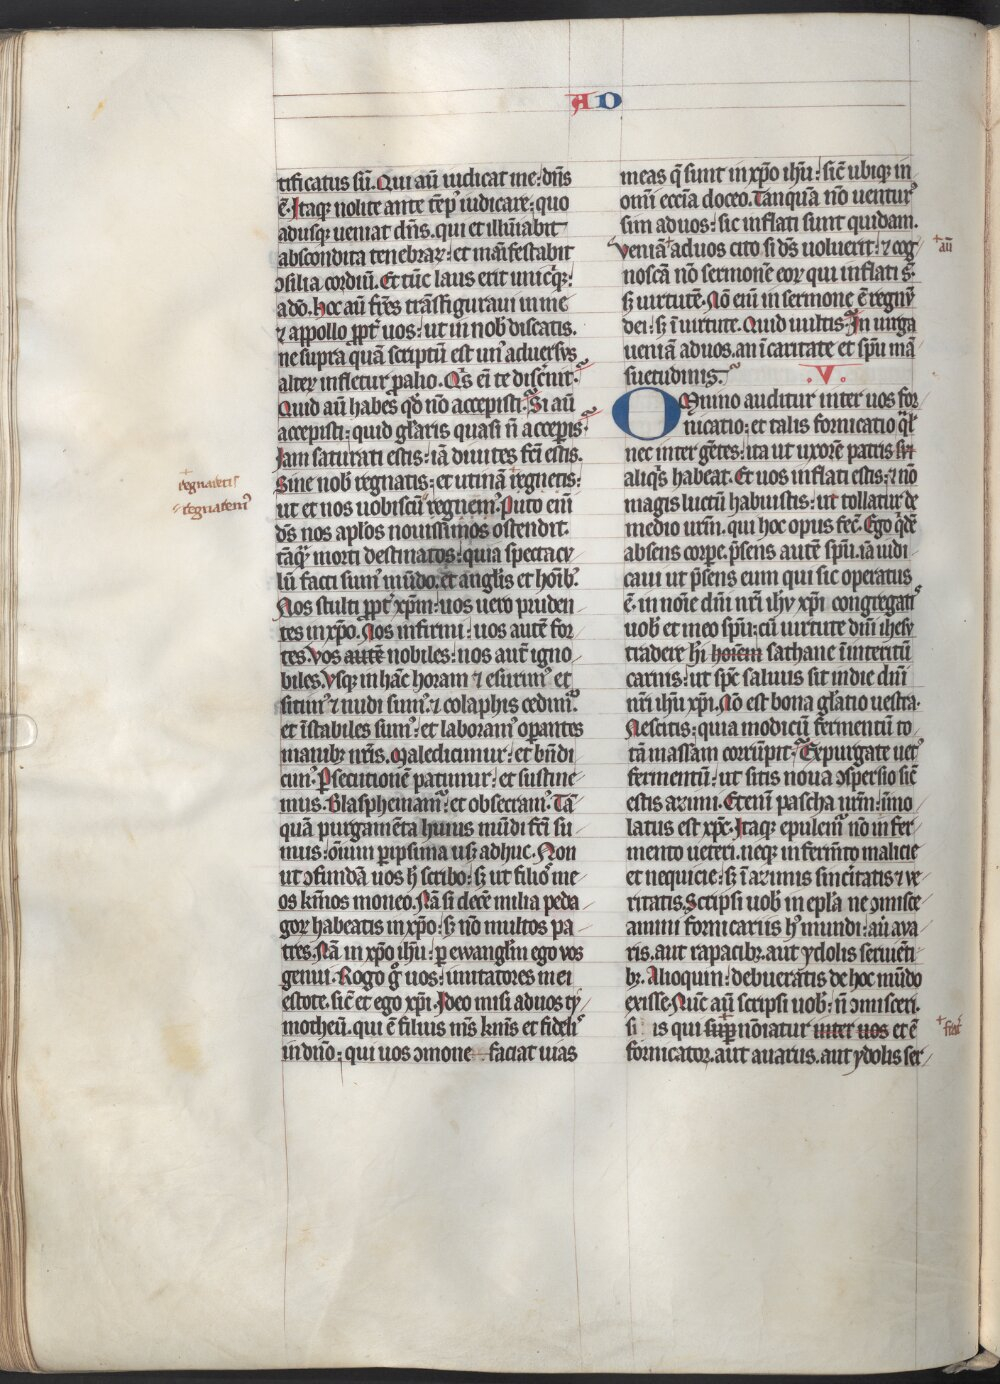 AD
tificatus sū. Qui aū iudicat me: dn̄s
ē. Itaq; nolite ante tēp᷒ iudicare: quo
adusq; ueniat dn̄s. qui et illūiabit
abscondita tenebraꝝ: et māifestabit
ɔsilia cordiū. Et tūc laus erit unicq̄;
a dō. hoc aū fr̄es trāsfiguraui in me
⁊ appollo ꝓpt᷒ uos: ut in nob̄ discatis.
ne supra quā scriptū est un᷒ aduersus
alteꝝ infletur ꝓ alio. Qⁱs eī te discīnit.
Quid aū habes qd̄ nō accepisti. Si aū
accepisti: quid gl̄aris quasi n̄ accepis᷒
Iam saturati estis: iā diuites fc̄i estis.
Sine nob̄ regnatis: et utinā regnetis:
regnaretis
regnarem᷒
ut et nos uobiscū regnem᷒. Puto eiī
ds̄ nos aplōs nouissimos ostendit.
tāqꝝ morti destinatos: quia spectacu
lū facti sum᷒ mūdo. et angl̄is et hoīb;
Nos stulti ꝓpt᷒ xp̄m: uos uero pruden
tes in xp̄o. Nos infirmi: uos autē for
tes. Vos autē nobiles: nos aut̄ igno
biles. Vsq; in hāc horam ⁊ esurim᷒ et
sitim᷒ ⁊ nudi sum᷒. ⁊ colaphis cedim᷒.
et īstabiles sum᷒: et laboram᷒ opantes
manib; nr̄is. Maledicimur: et bn̄di
cim᷒. Psecutionē patimur: et sustine
mus. Blasphemam᷒: et obsecram᷒. Tā
quā purgamēta huius mūdi fc̄i su
mus: oīnm peripsima usq; adhuc. Non
ut ɔfundā uos h̄ scribo: sꝫ ut filios me
os km̄os moneo. Nā si decē milia peda
goꝝ habeatis in xp̄o: sꝫ nō multos pa
tres. Nā in xp̄o ih̄u: ꝑ ewangl̄m ego vos
genui. Rogo g᷒ uos: imitatores mei
estote. sic̄ et ego xp̄i. Ideo misi ad uos ty
motheū. qui ē filius m̄s km̄s et fidel᷒
in dn̄o: qui uos ɔmone faciat uias
meas q̄ sunt in xp̄o ih̄u: sic̄ ubiq; in
omī ecc̄ia doceo. Tanquā nō uentur᷒
sim ad uos: sic inflati sunt quidam.
Veniā ad uos cito si ds̄ uoluerit: ⁊ cog
aū
noscā nō sermonē eoꝝ qui inflati s̄.
sꝫ uirtutē. Nō eiū in sermone ē regnū
dei: sꝫ ī uirtute. Quid uultis? In uirga
ueniā ad uos. an ī caritate et sp̄u mā
suetudinis.
.V.
OMnino auditur inter uos for
nicatio: et talis fornicatio q̄l᷒
nec inter gētes: ita ut uxorē patris sui
aliqⁱs habeat. Et uos inflati estis: ⁊ nō
magis luctū habuistis: ut tollatur de
medio ur̄m. qui hoc opus fec̄. Ego qⁱdē
absens corpe. p̄sens autē sp̄u. iā iudi
caui ut p̄sens eum qui sic operatus
ē. in noīe dn̄i nr̄i ih̄u xp̄i congregati᷒
uob̄ et meo sp̄u: cū uirtute dn̄i ihesu
tradere h̄i hoīem sathane ī interitū
carnis: ut sp̄c saluus sit in die dn̄i
nr̄i ih̄u xp̄i. Nō est bona gl̄atio uestra.
Nescitis: quia modicū fermentū to
tā massam corrūpit. Expurgate uet᷒
fermentū: ut sitis noua ɔspersio sic̄
estis azimi. Etenī pascha ur̄m: īmo
latus est xp̄c. Itaq; epulem᷒ nō in fer
mento ueteri. neq; in ferm̄to malicie
et nequicie: sꝫ ī azimis sincitatis ⁊ ve
ritatis. Scripsi uob̄ in epl̄a ne ɔmisce
amini fornicariis h᷒ mundi: aū aua
ris. aut rapacib;. aut ydolis seruiēti
b;. Alioquin: debueratis de hoc mūdo
exisse. Nūc aū scripsi uob̄: n̄ ɔmisceri.
si is qui nōiatur inter uos et ē
fornicator. aut auarus. aut ydolis ser